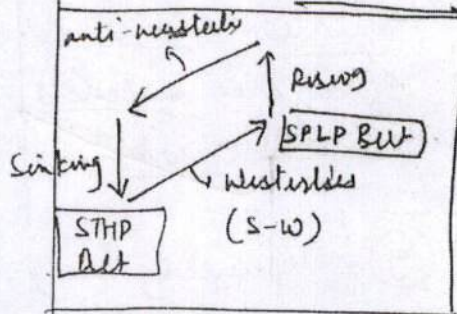 anti-westerlies
Rising
SPLP Belt
Sinking
Westerlies
(S-W)
STHP
Belt